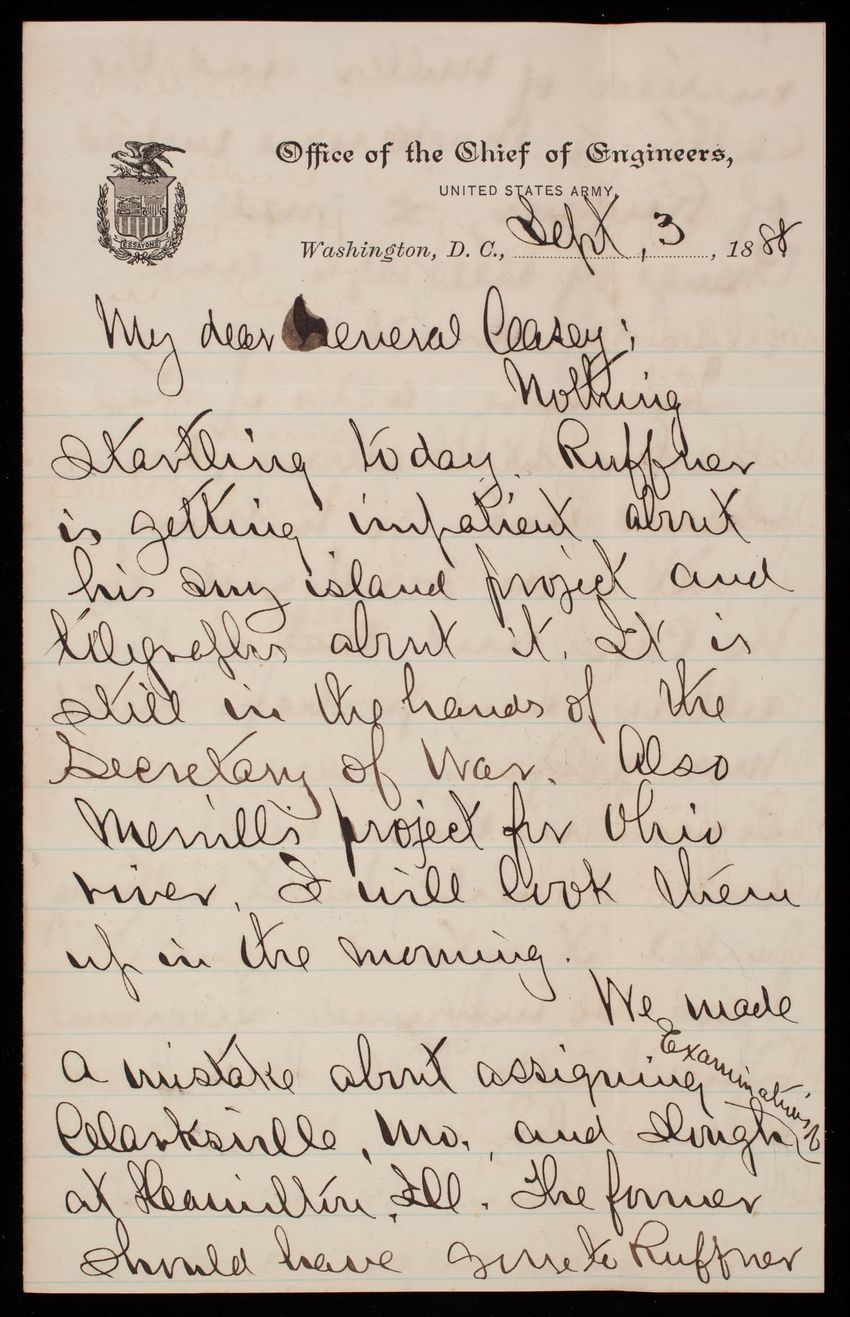 Office of the Chief of Engineers,
UNITED STATES ARMY,
ESSAYONS
Washington, D. C., Sept, 3, 1888
My dear General Casey;
Nothing
startling today. Ruffner
is getting impatient about
his Sny island project and
telegraphs about it. It is
still in the hands of the
Secretary of War. Also
Merrill's project for Ohio
river, I will look them
up in the morning.
We made
a mistake about assigning Examinations of
Clarksville, Mo., and Slough
at Hamilton, Ill. The former
should have gone to Ruffner